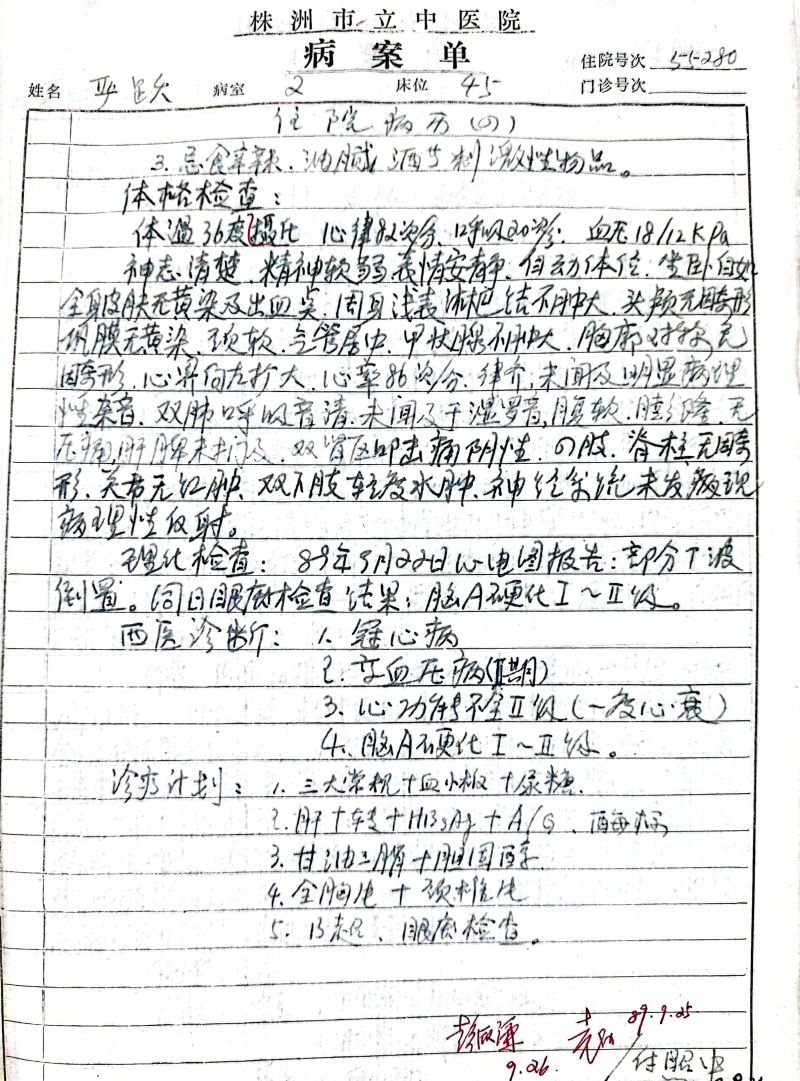 株洲市立中医院
病案单
住院号次 55-280
姓名 病室 2 床位 45 门诊号次
住院病历(四)
3. 忌食辛辣、油腻、酒与刺激性物品。
体格检查：
体温36度 心律82次/分、呼吸20次/分、血压18/12KPa
神志清楚、精神软弱、表情安静、自动体位、坐卧自如
全身皮肤无黄染及出血点、周身浅表淋巴结不肿大、头颅无畸形
巩膜无黄染、颈软、气管居中、甲状腺不肿大、胸廓对称、无
畸形、心界向左扩大、心率86次/分、律齐、未闻及明显病理
性杂音、双肺呼吸音清、未闻及干湿罗音，腹软、膨隆、无
压痛、肝脾未扪及、双肾区叩击痛阴性、四肢、脊柱无畸
形、关节无红肿、双下肢轻度水肿、神经系统未发现
病理性反射。
理化检查：89年9月22日心电图报告：部分T波
倒置。同日眼底检查结果：脑A硬化I～II级。
西医诊断：1. 冠心病
2. 高血压病(II期)
3. 心功能不全II级(一度心衰)
4. 脑A硬化I～II级。
诊疗计划：1. 三大常规+血小板+尿糖.
2. 肝+转+HBsAg+A/G、
3. 甘油三脂+胆固醇
4. 全胸片+颈椎片
5. B超、眼底检查。
89.9.25
9.26